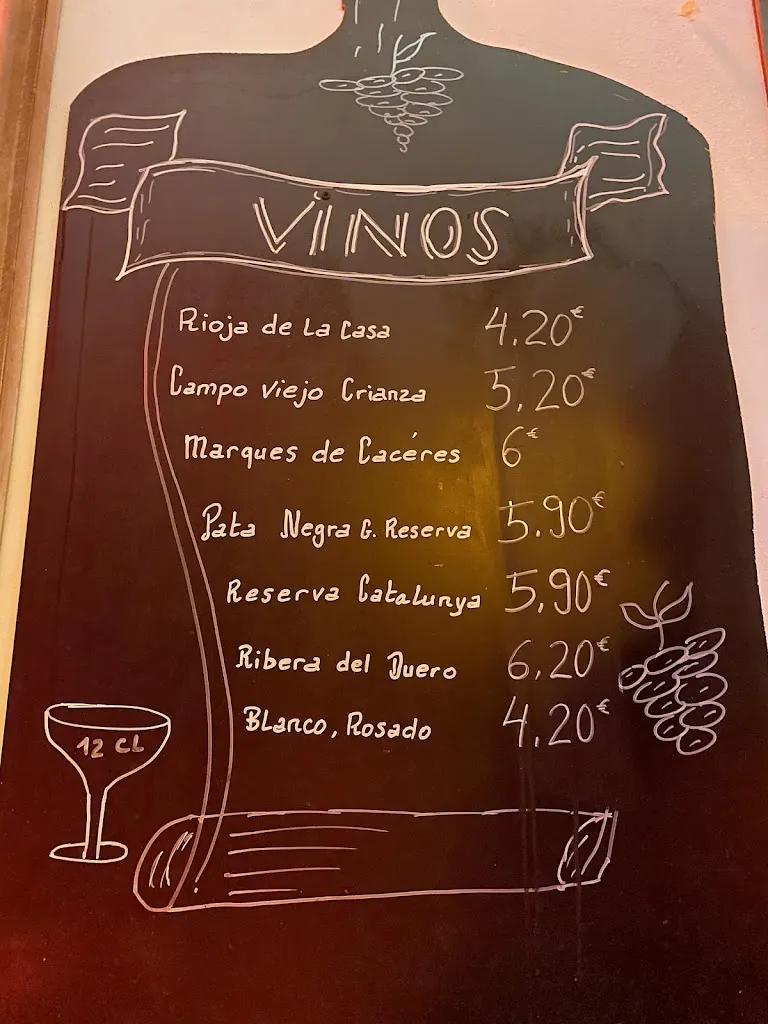 VINOS
Rioja de La Casa 4.20€
Campo Viejo Crianza 5,20€
Marques de Cacéres 6€
Pata Negra G. Reserva 5.90€
Reserva Catalunya 5,90€
Ribera del Duero 6,20€
Blanco, Rosado 4,20€
12 CL